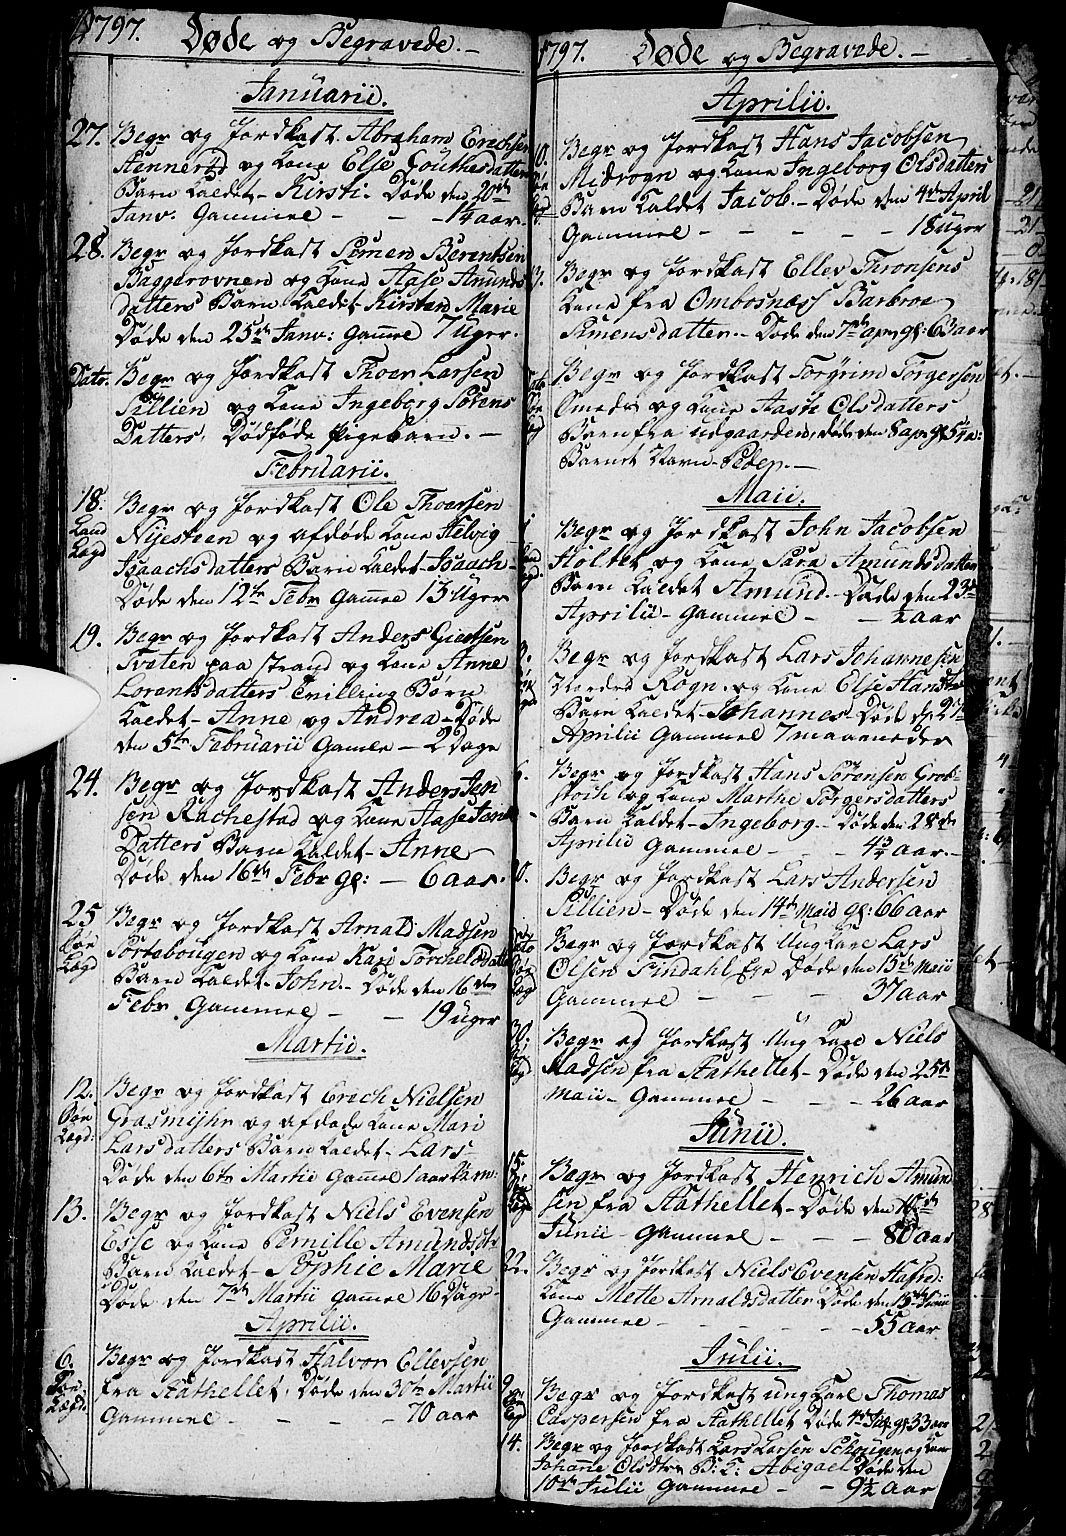 1797. Døde og Begravede. -
Januarii.
27. Begr og Jordkast. Abraham Erichsen
Hennerød og Kone Else Gouthesdatters
Barn kaldet - Kirsti. Døde den 20de
Janv. Gammel - - - 1/4 aar.
28. Begr og Jordkast Simen Berentsen
Baggerovnen og Kone Aase Amunds
datters Barn kaldet - Kirsten Marie
Døde den 25de Janv: Gamel 7 Uger.
Dato. Begr og Jordkast Thoer Larsen
Sillien og Kone Ingeborg Sørens
Datters, Dødføde Pigebarn. -
Februarii.
18. Begr og Jordkast Ole Thoersen
Land Nijesteen og afdøde Kone Helvig
Lagd Isaachsdatters Barn kaldet - Isaach -
Døde den 12te Febr Gamel 13 Uger
19. Begr og Jordkast Anders Giertsen
Tveten paa Strand og Kone Anne
Lorentsdatters Tvilling Børn
kaldet - Anne og Andrea - Døde
den 5te Februarii Gamle - 2 Dage
24. Begr og Jordkast Anders Jen
sen Rachestad og Kone Aase Jens
Datters Barn kaldet - Anne
Døde den 16de Febr gl: - 6 aar.
25 Begr og Jordkast Arnold Madsen
Søe Portebougen og Kone Kari Torchelsdatters
Lagd Barn kaldet - John. - Døde den 16 den
Febr. Gammel - - 19 uger
Martii.
12. Begr og Jordkast Erich Nielsen
Søe Grasmijhr og afdøde Kone Mari
Lagd: Larsdatters Barn kaldet - Lars -
Døde den 6te Martii Gamel 1 aar
13. Begr og Jordkast Niels Evensen
Esse og Kone Pernille Amundsdtr
Barn kaldet - Sophie Marie
Døde den 7de Martii Gamel 16 Dage -
Aprilii.
6. Begr og Jordkast Halvor Ellevsen
Søe fra Aathellet. Døde den 30te Martii
Lagd: Gammel - - - - 70 aar
1797. Døde og Begravede. -
Aprilii.
Begr og Jordkast Hans Jacobsen
Midsogn og Kone Ingeborg Olsdatters
Barn kaldet Jacob. - Døde den 4de April
Gammel - - - - - 18 uger
Begr og Jordkast Ellev Tronsens
Kone fra Ombosnæs Barbroe
Simensdatter. - Døde den 7de apr. gl: 63 aar
Begr og Jordkast Torgrim Torgersen
Omeds og Kone Aase Olsdatters
Barn fra udgaarden, døde den 8 apr gl 5 1/4 a:
Barnets Navn - Peder. -
Maii.
Begr og Jordkast John Jacobsen
Holtet og Kone Sara Amundsdatters
Barn kaldet Amund. Døde den 23de
Aprilii - Gammel - - 1/2 aar
Begr og Jordkast Lars Johannesen
Nordre Rogn. og Kone Else Hansdtr
Barn kaldet - Johannes - Døde den 27de
Aprilii Gammel 7 maaneder
Begr og Jordkast Hans Sørensen Grob-
stoch og Kone Marthe Torgersdatters
Barn kaldet - Ingeborg - Døde den 28de
Aprilii Gammel - - 4 3/4 aar. -
Begr og Jordkast Lars Andersen
Sillien - Døde den 14de Maii gl: 66 aar
Begr og Jordkast Ung Karl Lars
Olsen Findahl Døde den 15de Maii
Gammel - - - - 37 aar
30. Begr og Jordkast Ung Karl Niels
Madsen fra Aathellet - Døde den 25de
Maii - Gammel - - - 26 aar
Junii.
15. Begr og Jordkast Henrich Amund
sen fra Aathellet - Døde den 10de
Junii - Gammel - - - 80 aar
22. Begr og Jordkast Niels Evensen Hafred:
Kone Mette Arnoldsdatter Døde den 15de Junii
Gammel - - - - - 55 aar
Julii.
9. Begr og Jordkast ung Karl Thomas
Caspersen fra Aathellet Døde gl 33 aar
14. Begr og Jordkast Lars Larsen Schougen og Kone
Johanne Olsdtr B: K: Abigael Døde den
10de Julii Gammel - - 9 1/2 aar